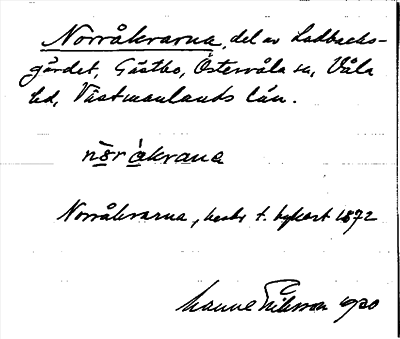 Norråkrarna, del av Ladbacks-
gärdet, Gästbo, Östervåla sn, Våla
hd, Västmanlands län.
nòråkrana
Norråkrarna, beskr t. bykart 1872
Manne Eriksson 1920